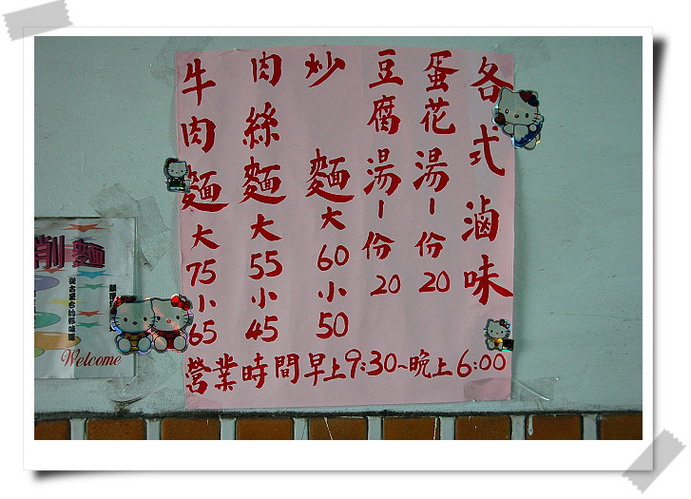 各式滷味
蛋花湯一份20
豆腐湯一份20
炒麵大60小50
肉絲麵大55小45
牛肉麵大75小65
營業時間早上9:30~晚上6:00
削麵
Welcome